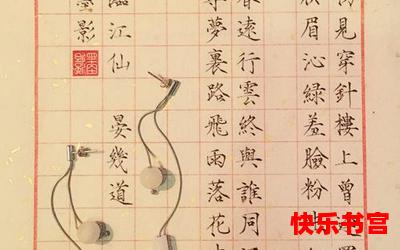 見穿針樓上曾
眉沁綠羞臉粉
春遠行雲終與誰同
夢裏路飛雨落花
臨江仙 晏幾道
影
快乐书宫